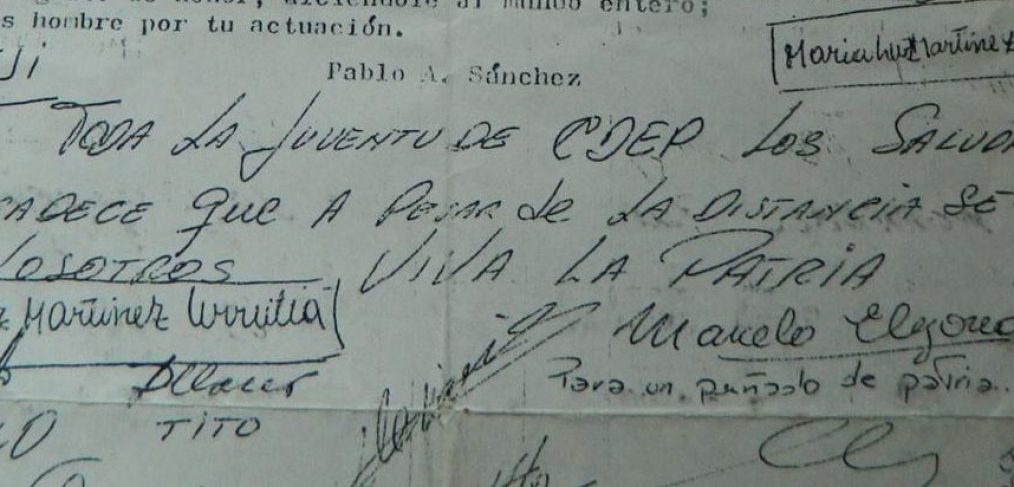 honor, diciéndole al mundo entero;
s hombre por tu actuación.
Pablo A. Sánchez
Maria Luz Martinez
TODA LA JUVENTU DE CDEP LOS SALUD
ADECE QUE A PESAR de LA DISTANCIA SE
VOSOTROS VIVA LA PATRIA
Z Martinez Urrutia
Manelo
Para un puñado de patria.
TITO